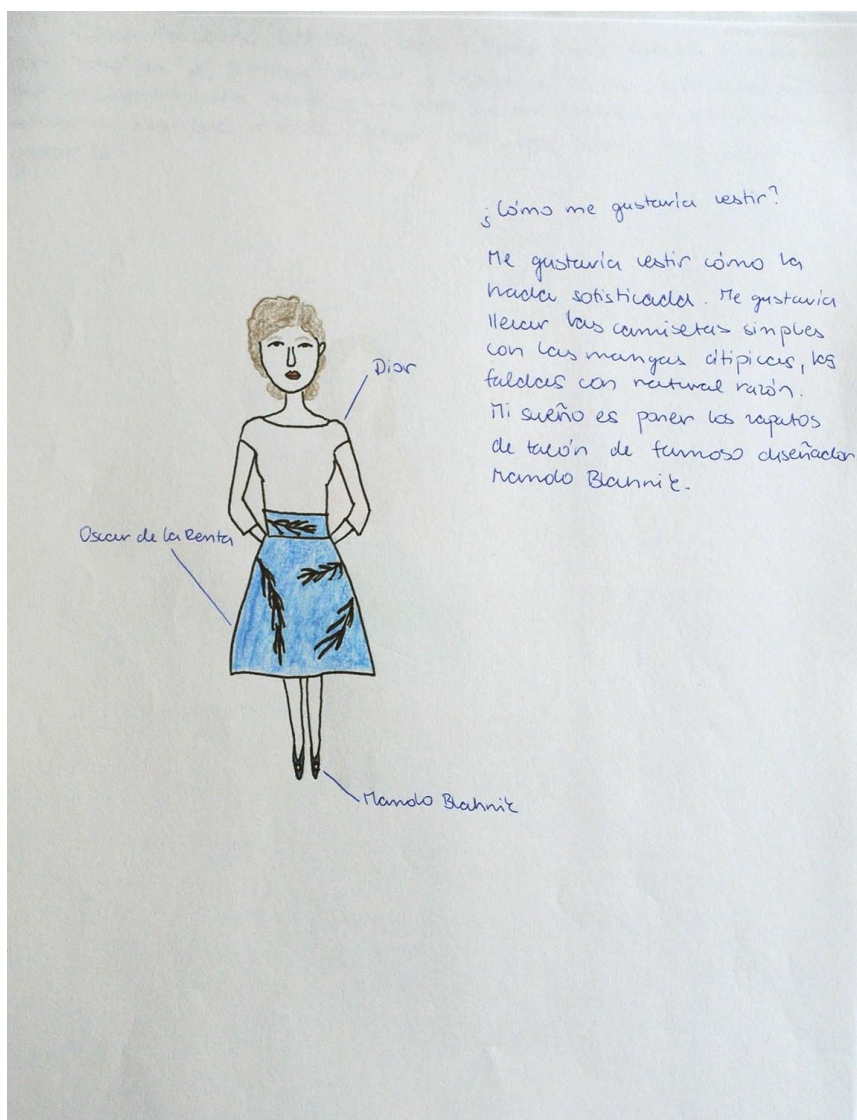 ¿Cómo me gustaría vestir?
Me gustaría vestir cómo la
hada sofisticada. Me gustaría
llevar las camisetas simples
con las mangas atípicas, las
faldas con natural razón.
Mi sueño es poner los zapatos
de tacón de famoso diseñador
Manolo Blahnik.
Dior
Oscar de la Renta
Manolo Blahnik